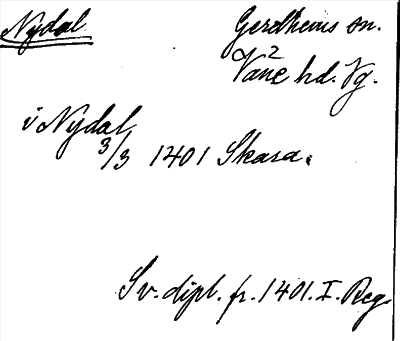 Nydal Gerdhems sn.
Vane hd. Vg.
2
i Nydal
3/3 1401 Skara.
Sv. dipl. fr. 1401. I. Reg.